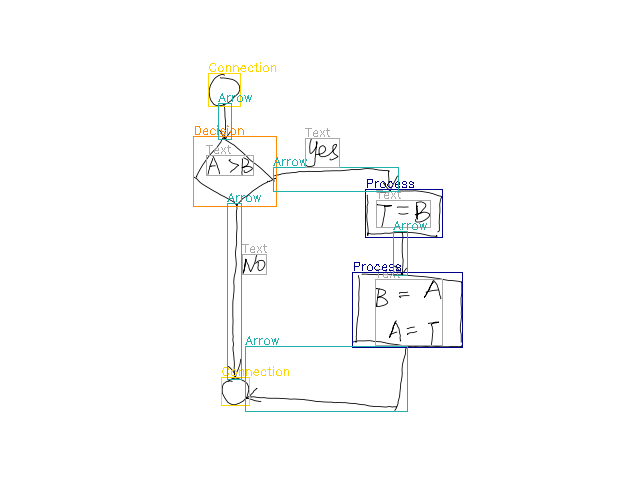 Connection
Arrow
Decision
Text
A >B
Text
Yes
Arrow
Process
Text
T = B
Arrow
Arrow
Text
No
Process
Text
B = A
A = T
Arrow
Connection